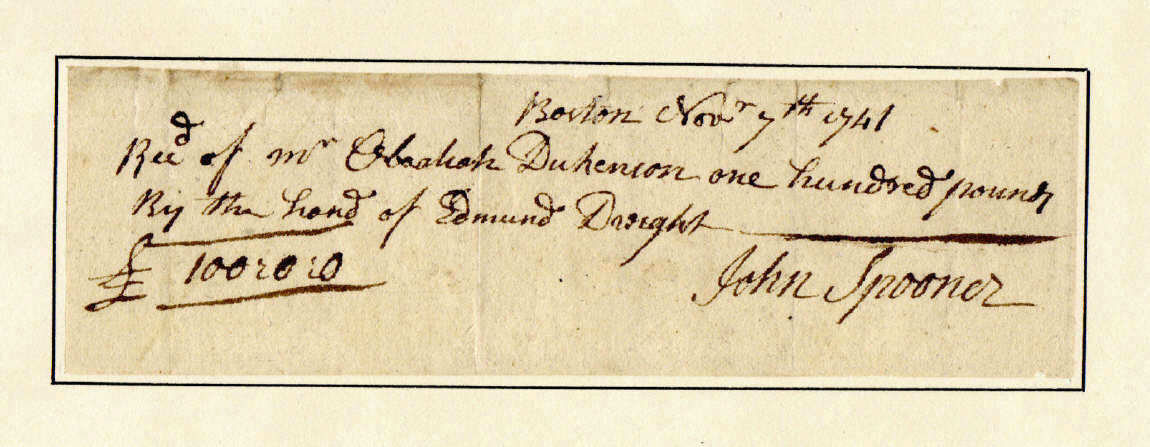 Boston Novr 7th 1741
Recd of mr Obadiah Dickenson one hundred pounds
By the hand of Edmund Dwight
£ 100:0:0
John Spooner